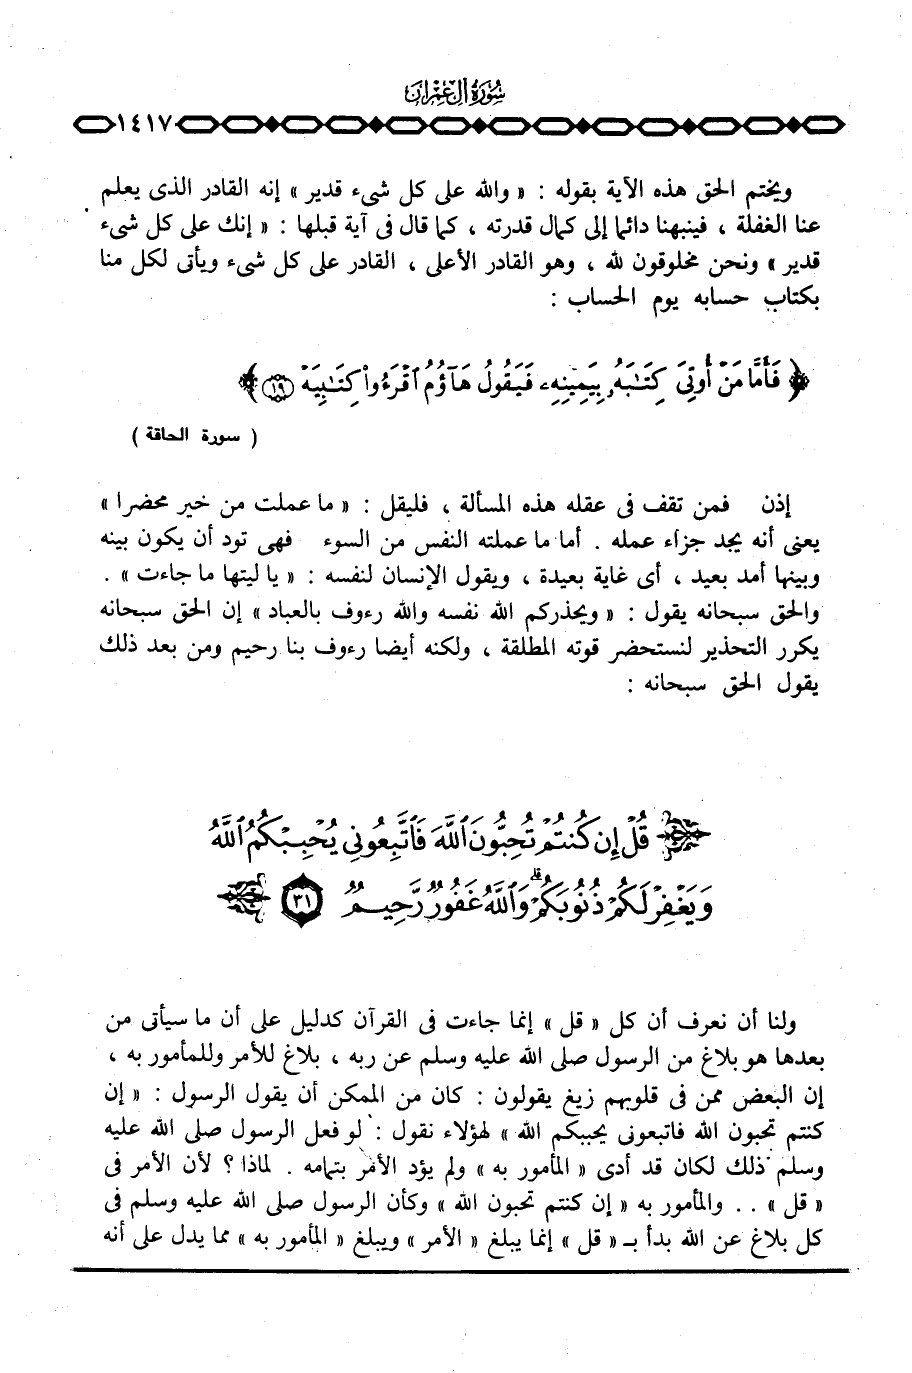 سُورَةُ آلِ عِمْرَان
١٤١٧
ويختم الحق هذه الآية بقوله : « والله على كل شىء قدير » إنه القادر الذى يعلم
عنا الغفلة ، فينبهنا دائما إلى كمال قدرته ، كما قال فى آية قبلها : « إنك على كل شىء
قدير » ونحن مخلوقون لله ، وهو القادر الأعلى ، القادر على كل شىء ويأتى لكل منا
بكتاب حسابه يوم الحساب :
﴿ فَأَمَّا مَنْ أُوتِىَ كِتَٰبَهُۥ بِيَمِينِهِۦ فَيَقُولُ هَآؤُمُ ٱقْرَءُوا۟ كِتَٰبِيَهْ ١٩ ﴾
( سورة الحاقة )
إذن فمن تقف فى عقله هذه المسألة ، فليقل : « ما عملت من خير محضرا »
يعنى أنه يجد جزاء عمله . أما ما عملته النفس من السوء فهى تود أن يكون بينه
وبينها أمد بعيد ، أى غاية بعيدة ، ويقول الإنسان لنفسه : « يا ليتها ما جاءت » .
والحق سبحانه يقول : « ويحذركم الله نفسه والله رءوف بالعباد » إن الحق سبحانه
يكرر التحذير لنستحضر قوته المطلقة ، ولكنه أيضا رءوف بنا رحيم ومن بعد ذلك
يقول الحق سبحانه :
قُلْ إِن كُنتُمْ تُحِبُّونَ ٱللَّهَ فَٱتَّبِعُونِى يُحْبِبْكُمُ ٱللَّهُ
وَيَغْفِرْ لَكُمْ ذُنُوبَكُمْ ۗ وَٱللَّهُ غَفُورٌ رَّحِيمٌ ٣١
ولنا أن نعرف أن كل « قل » إنما جاءت فى القرآن كدليل على أن ما سيأتى من
بعدها هو بلاغ من الرسول صلى الله عليه وسلم عن ربه ، بلاغ للأمر وللمأمور به ،
إن البعض ممن فى قلوبهم زيغ يقولون : كان من الممكن أن يقول الرسول : « إن
كنتم تحبون الله فاتبعونى يحببكم الله » لهؤلاء نقول : لو فعل الرسول صلى الله عليه
وسلم ذلك لكان قد أدى « المأمور به » ولم يؤد الأمر بتمامه . لماذا ؟ لأن الأمر فى
« قل » . . والمأمور به « إن كنتم تحبون الله » وكأن الرسول صلى الله عليه وسلم فى
كل بلاغ عن الله بدأ بـ « قل » إنما يبلغ « الأمر » ويبلغ « المأمور به » مما يدل على أنه